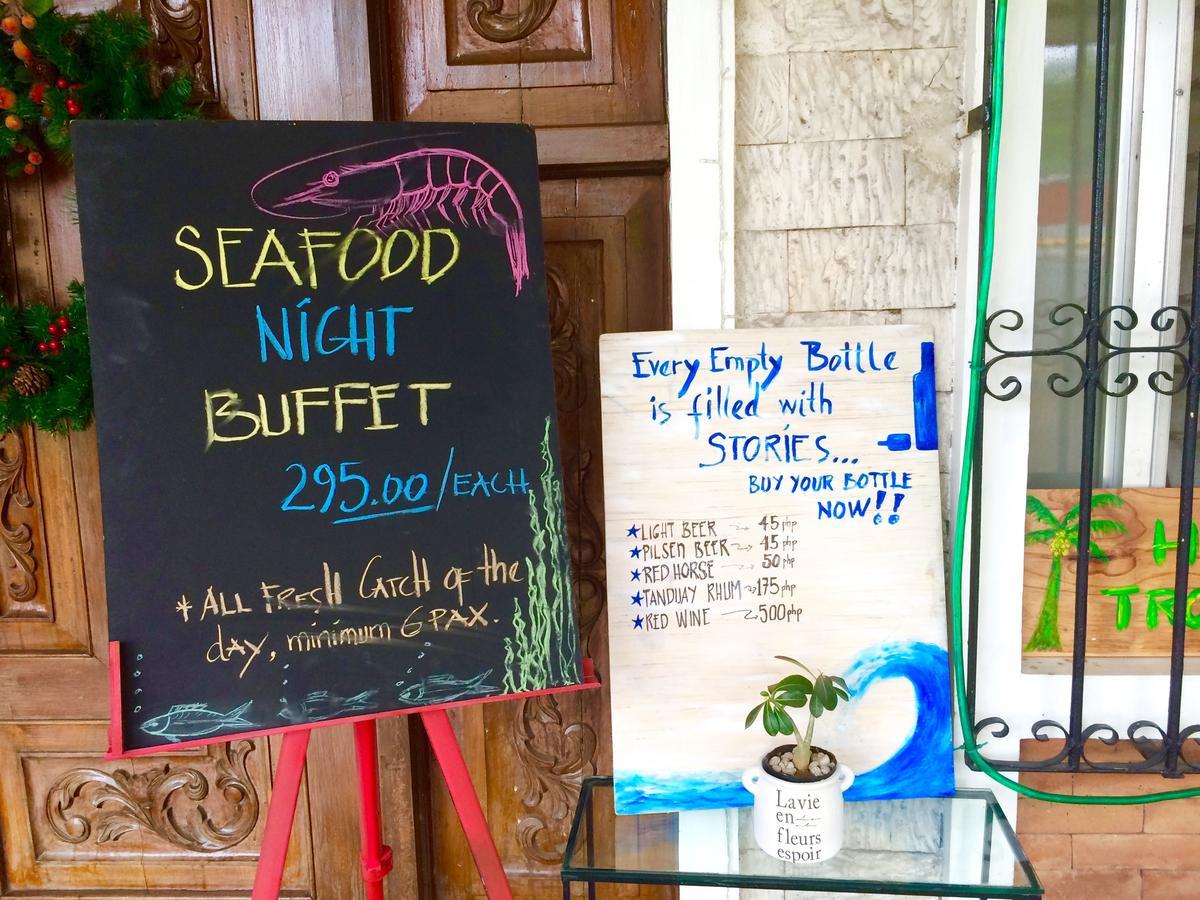 SEAFOOD
NIGHT
BUFFET
295.00/EACH
* ALL FRESH CATCH OF the
day, minimum 6 PAX.
Every Empty Bottle
is filled with
STORIES...
BUY YOUR BOTTLE
NOW!!
★LIGHT BEER → 45 php
★PILSEN BEER → 45 php
★RED HORSE 50 php
★TANDUAY RHUM → 175 php
★RED WINE → 500 php
Lavie
en
fleurs
espoir
H
TRO